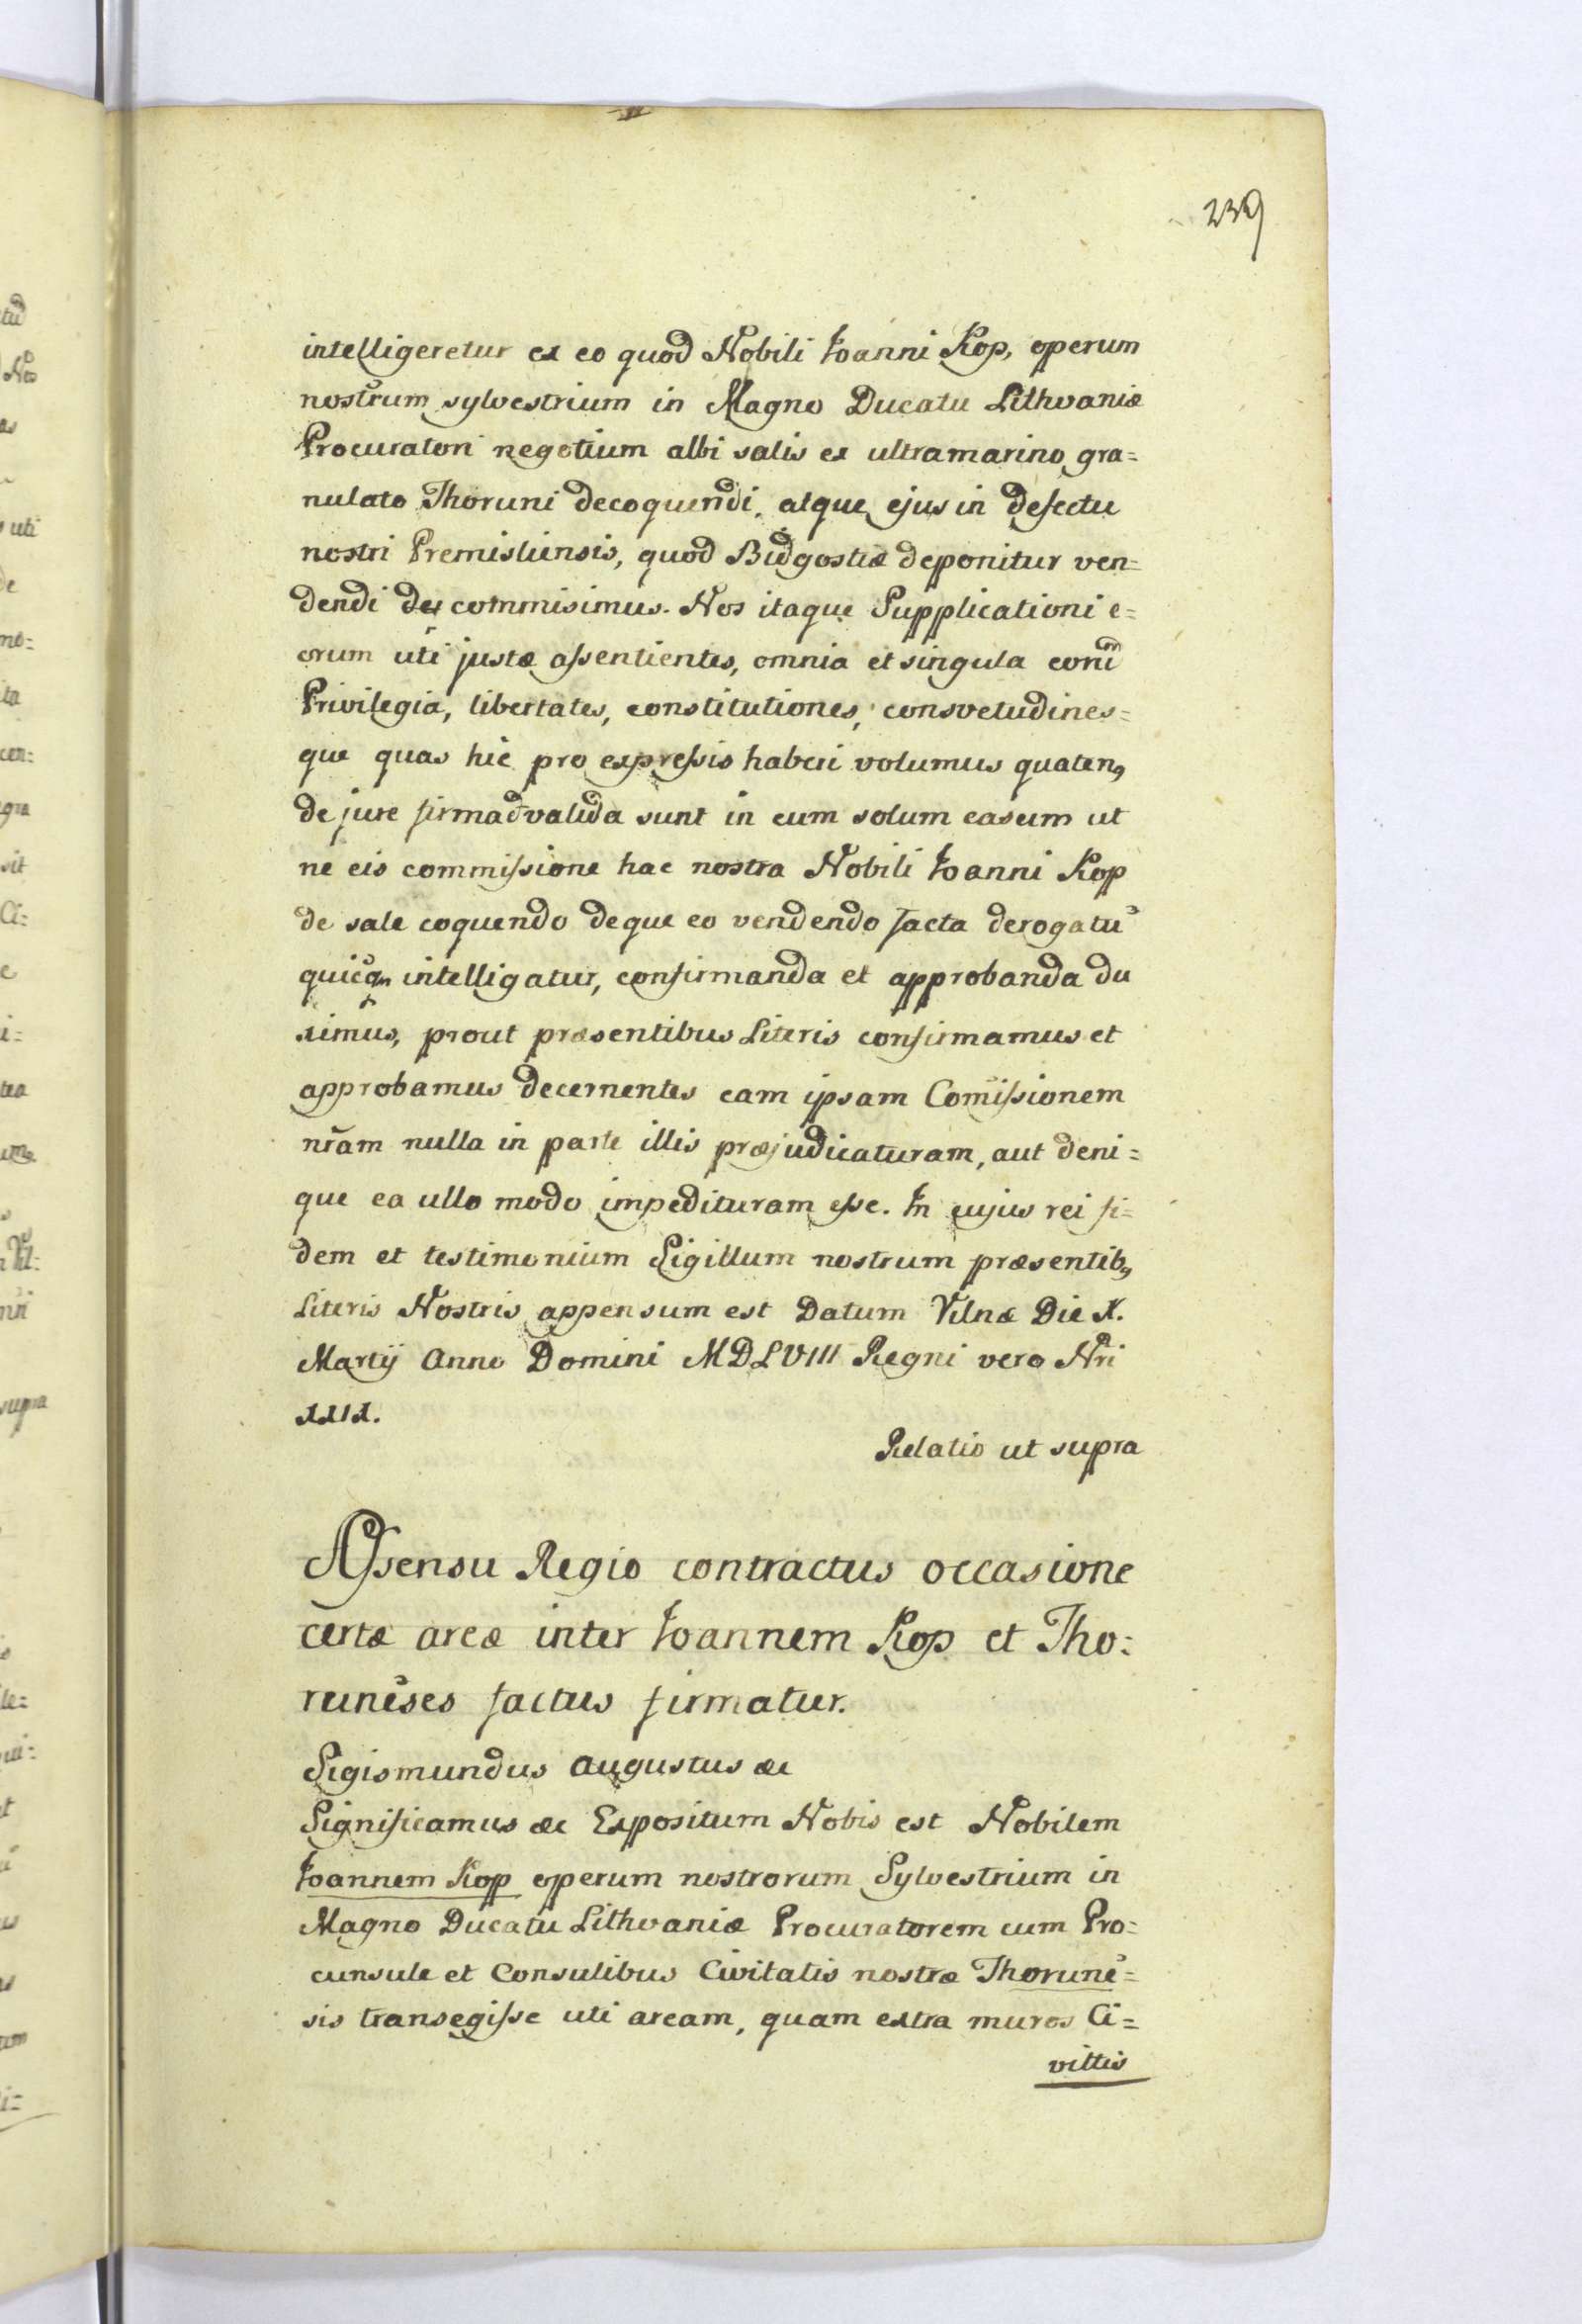 239
intelligeretur ex eo quod Nobili Joanni Kop, operum
nostrum sylvestrium in Magno Ducatu Lithvaniæ
Procuratori negotium albi salis ex ultramarino gra=
nulato Thoruni decoquendi, atque ejus in defectu
nostri Premisliensis, quod Bidgostiæ deponitur ven=
dendi commisimus. Nos itaque Supplicationi e=
orum uti justæ assentientes, omnia et singula eorum
Privilegia, libertates, constitutiones, consvetudines=
que quas hic pro expressis haberi volumus quaten9
de jure firma & valida sunt in eum solum casum ut
ne eis commissione hac nostra Nobili Joanni Kop
de sale coquendo deque eo vendendo facta derogatũ
quicqm intelligatur, confirmanda et approbanda du
ximus, prout præsentibus Literis confirmamus et
approbamus decernentes eam ipsam Com̃issionem
nr̃am nulla in parte illis præjudicaturam, aut deni=
que ea ullo modo impedituram esse. In cujus rei fi=
dem et testimonium Sigillum nostrum præsentib9
Literis Nostris appensum est Datum Vilnæ Die X.
Martij Anno Domini MDLVIII Regni vero Nri
XXIX.
Relatio ut supra
Assensu Regio contractus occasione
certæ areæ inter Joannem Kop et Tho=
runẽses factus firmatur.
Sigismundus Augustus &c
Significamus &c Expositum Nobis est Nobilem
Joannem Kop operum nostrorum Sylvestrium in
Magno Ducatu Lithvaniæ Procuratorem cum Pro=
cunsule et Consulibus Civitatis nostræ Thorunẽ=
sis transegisse uti aream, quam extra muros Ci=
vittis